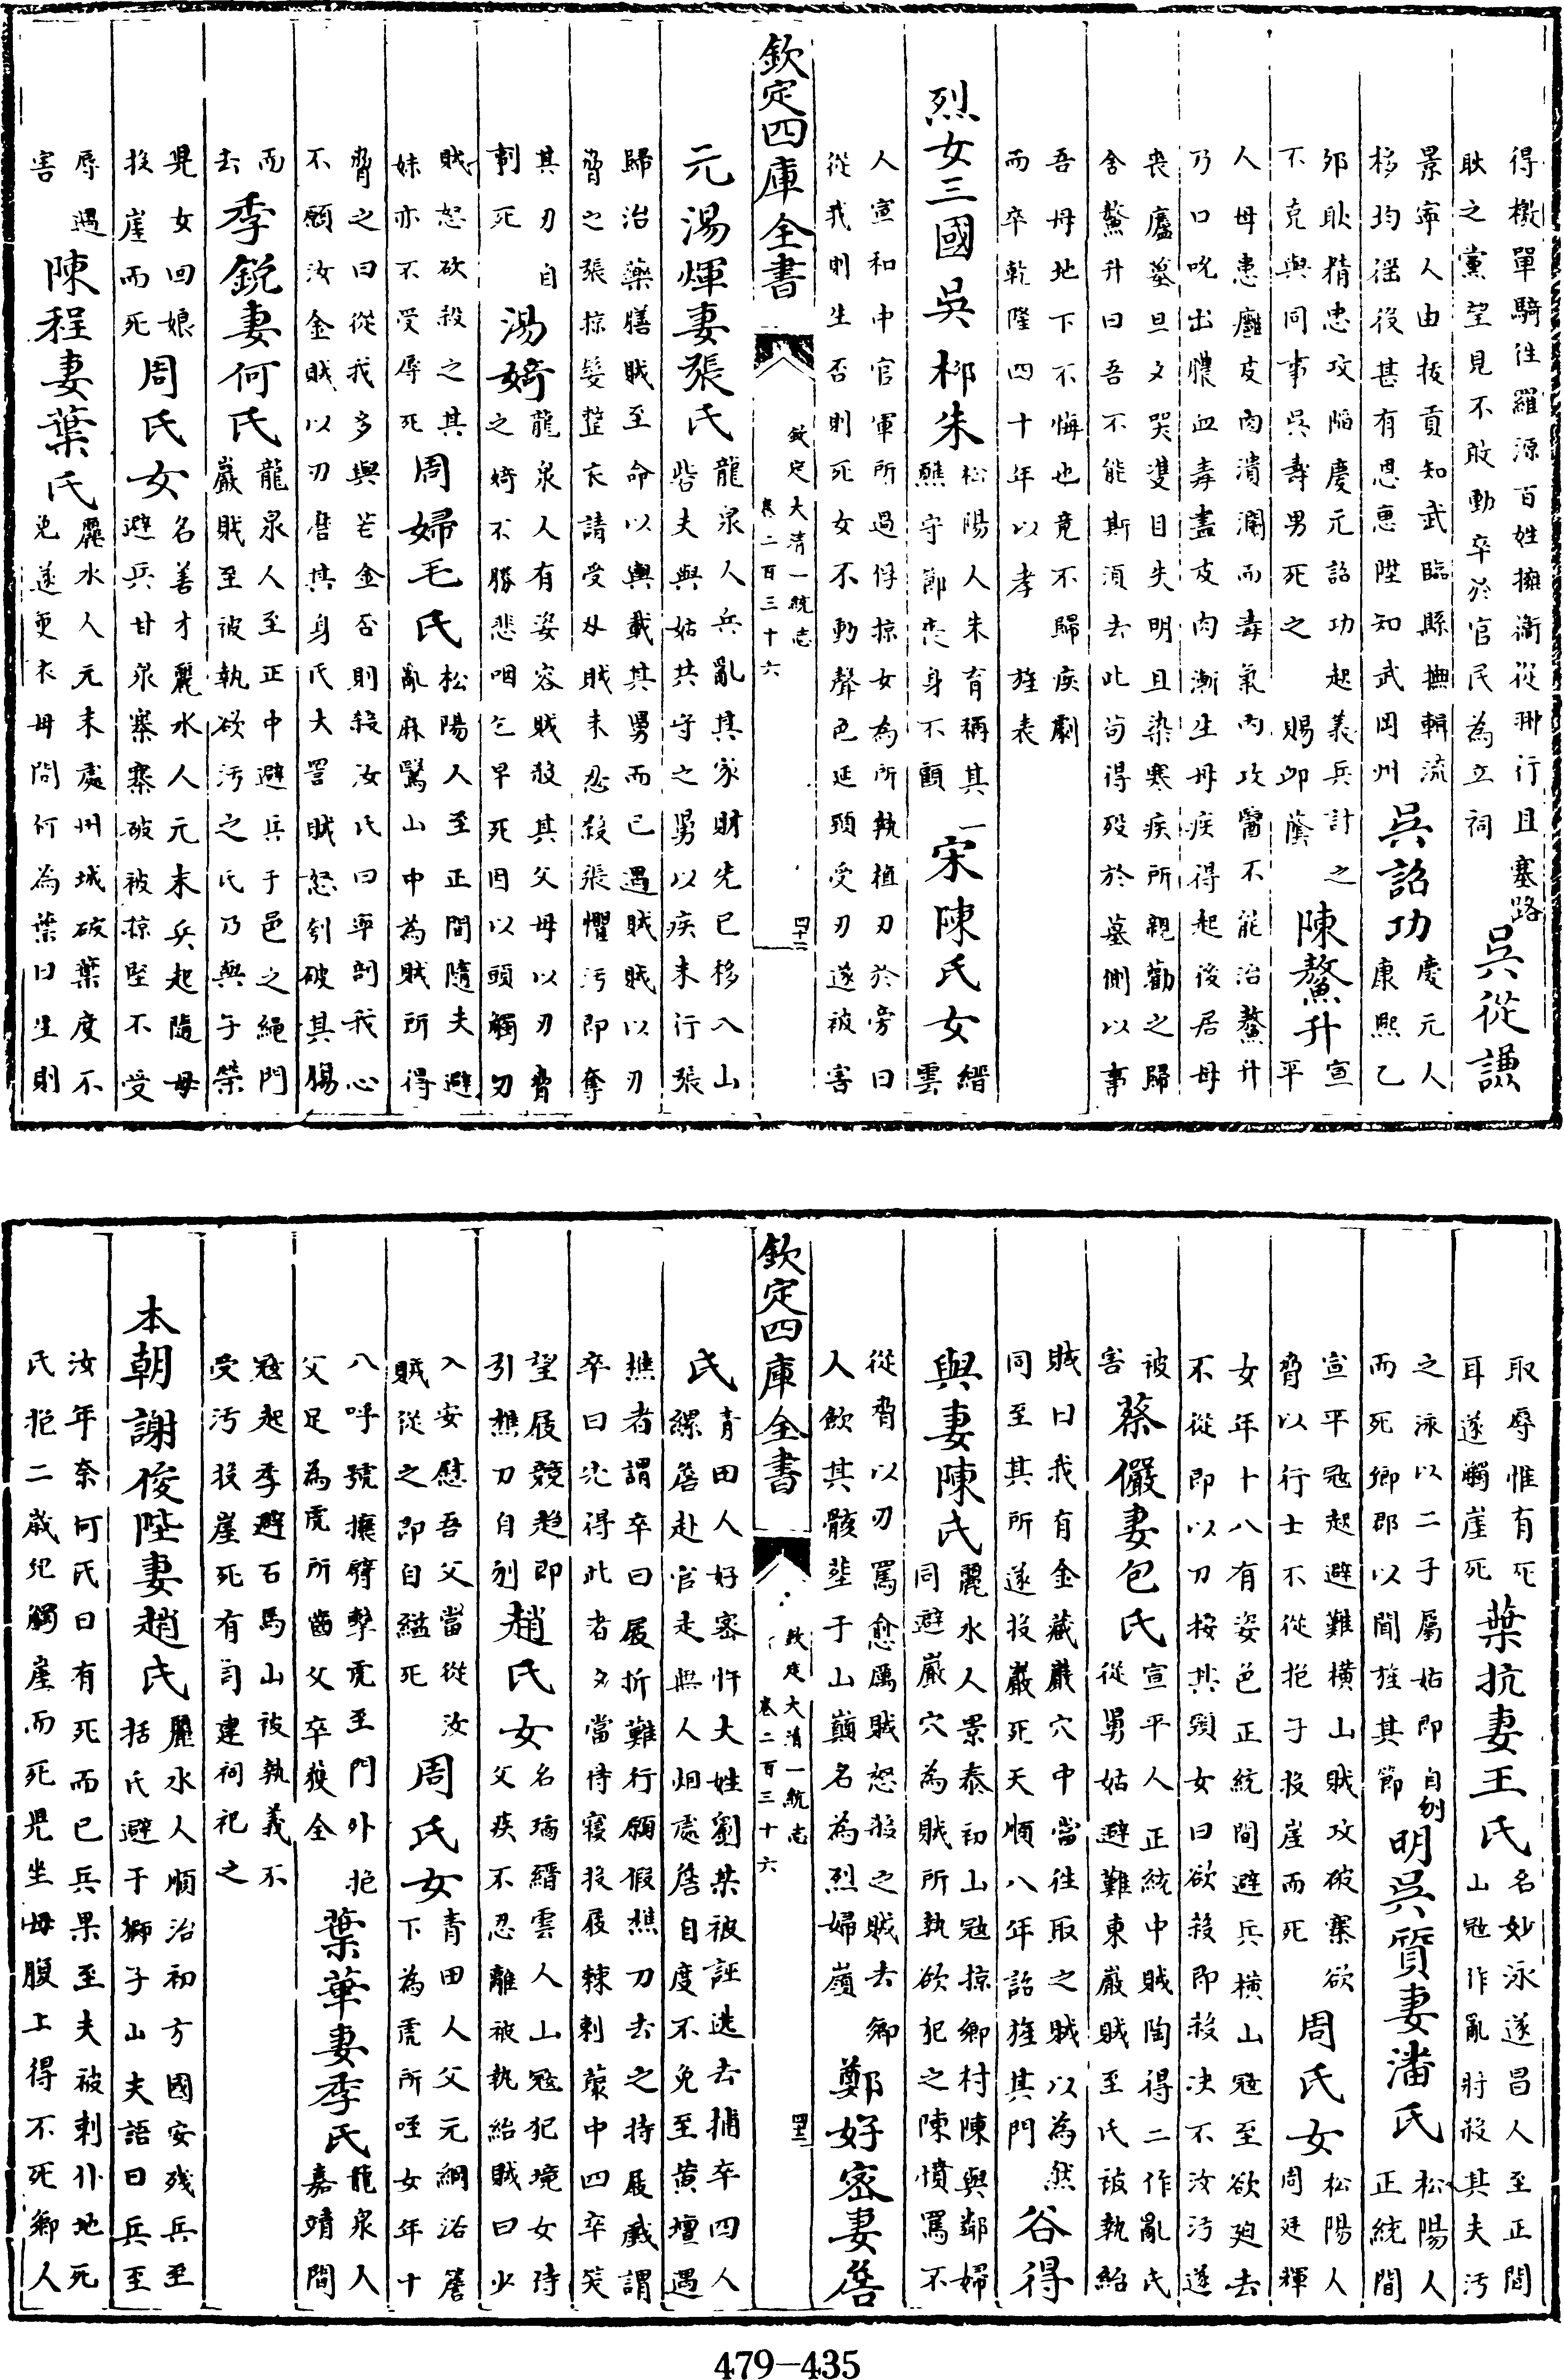 得檄單騎往羅源百姓擁衛從耼行且塞路耿之黨望見不敢動卒於官民為立祠吳從謙
景寧人由拔貢知武臨縣撫輯流移均徭役甚有恩惠陞知武岡州吳詔功慶元人康熙乙
夘耿精忠攻陷慶元詔功起義兵計之不克與同事吳壽男死之賜卹廕陳鰲升宣平
人母患癰皮肉潰瀾而毒氣內攻醫不能治鰲升乃口吮出膿血毒盡皮肉漸生母疾得起後居母
喪廬墓旦夕哭雙目失明且染寒疾所親勸之歸舍鰲升曰吾不能斯須去此茍得殁於墓側以事
吾母地下不悔也竟不歸疾劇而卒乾隆四十年以孝旌表
烈女三國吳栁朱松陽人朱育稱其一醮守節喪身不顧宋陳氏女縉雲
人宣和中官軍所過俘掠女為所執植刃於旁曰從我則生否則死女不動聲色延頸受刃遂被害
欽定四庫全書
欽定大清一統志
卷二百三十六
四十二
元湯煇妻張氏龍泉人兵亂其家財先已移入山砦夫與姑共守之舅以疾未行張
歸治藥膳賊至命以輿載其舅而已遇賊賊以刃脅之張掠髮整衣請受刄賊未忍殺張懼污即奪
其刃自刺死湯婍龍泉人有姿容賊殺其父母以刃脅之婍不勝悲咽乞早死因以頭觸刃
賊怒砍殺之其妹亦不受辱死周婦毛氏松陽人至正間隨夫避亂麻鷖山中為賊所得
脅之曰從我多與若金否則殺汝氏曰寧剖我心不願汝金賊以刃磨其身氏大詈賊怒刳破其腸
而去季銳妻何氏龍泉人至正中避兵于邑之繩門巖賊至被執欲污之氏乃與子榮
兒女回娘投崖而死周氏女名善才麗水人元末兵起隨母避兵甘泉寨寨破被掠堅不受
辱遇害陳程妻葉氏麗水人元末處州城破葉度不免遂更衣母問何為葉曰生則
取辱惟有死耳遂觸崖死葉抗妻王氏名妙泳遂昌人至正間山冦作亂將殺其夫污
之泳以二子屬姑即自刎而死鄉郡以聞旌其節明吳質妻潘氏松陽人正統間
宣平冦起避難橫山賊攻破寨欲脅以行士不從抱子投崖而死周氏女松陽人周廷輝
女年十八有姿色正統間避兵橫山冦至欲廹去不從即以刀按其頸女曰欲殺即殺决不汝污遂
被害蔡儼妻包氏宣平人正統中賊陶得二作亂氏從男姑避難東巖賊至氏被執紿
賊曰我有金藏巖穴中當往取之賊以為然同至其所遂投巖死天順八年詔旌其門谷得
與妻陳氏麗水人景泰初山冦掠鄉村陳與鄰婦同避巖穴為賊所執欲犯之陳憤罵不
從脅以刃罵愈厲賊怒殺之賊去鄉人飲其骸塟于山巔名為烈婦嶺鄭好密妻詹
欽定四庫全書
欽定大清一統志
卷二百三十六
四十三
氏青田人好密忤大姓劉某被誣逃去捕卒四人縲詹赴官走無人烟處詹自度不免至黃壇遇
樵者謂卒曰屐折難行願假樵刀去之持屐戲謂卒曰先得此者夕當侍寢投屐棘刺叢中四卒笑
望屐競趨即引樵刀自刎趙氏女名瑀縉雲人山冦犯境女侍父疾不忍離被執紿賊曰少
入安慰吾父當從汝賊從之即自縊死周氏女青田人父元綱浴簷下為虎所咥女年十
八呼號攘臂擊虎至門外抱父足為虎所齒父卒獲全葉華妻季氏龍泉人嘉靖間
冦起季避石馬山被執義不受污投崖死有司建祠祀之
本朝謝俊陛妻趙氏麗水人順治初方國安殘兵至括氏避于獅子山夫語曰兵至
汝年奈何氏曰有死而已兵果至夫被刺仆地死氏抱二歲兒觸崖而死兒坐母腹上得不死鄉人
479-435